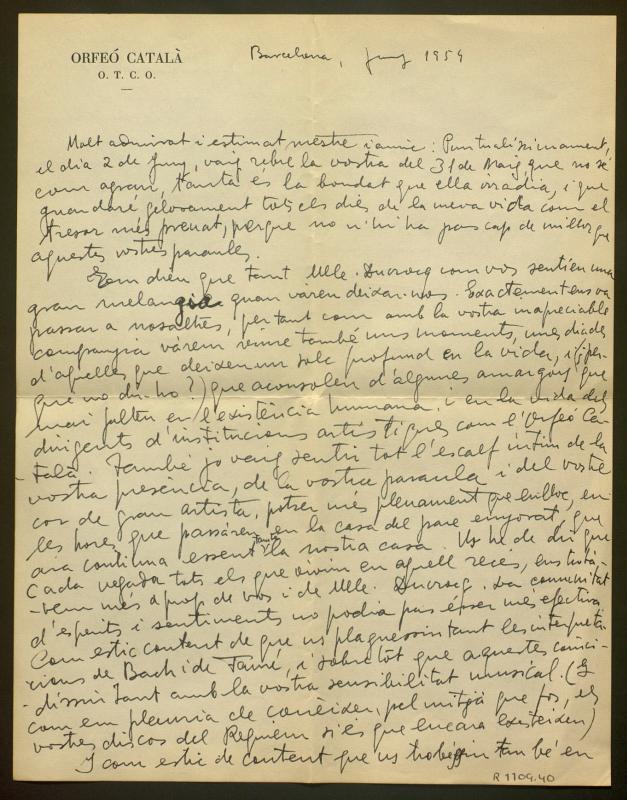 ORFEÓ CATALÀ
O. T. C. O.
Barcelona, Juny 1954
Molt admirat i estimat mestre i amic: Puntualíssimament,
el dia 2 de Juny, vaig rebre la vostra del 31 de Maig, que no sé
com agrair, tanta és la bondat que ella irradia, i que
guardaré gelosament tots els dies de la meva vida com el
tresor més preuat, perquè no n'hi ha pas cap de millor que
aquestes vostres paraules.
Em dieu que tant Mlle. Ducrocq com vos sentíen una
gran melangia quan vàren deixar-nos. Exactament ens va
passar a nosaltres, per tant com amb la vostra inapreciable
companyia vàrem viure també uns moments, unes diades
d'aquelles que deixen un solc profund en la vida, i (¿per-
què no dir-ho?) que aconsolen d'algunes amargors que
mai falten en l'existència humana, i en la vida dels
dirigents d'institucions artístiques com l'Orfeó Ca-
talà. També jo vaig sentir tot l'escalf íntim de la
vostra presència, de la vostra paraula i del vostre
cor de gran artista, potser més plenament que enlloc, en
les hores que passàrem en la casa del pare enyorat, que
ara continua essent també la nostra casa. Us he de dir que
cada vegada tots els que vivim en aquell recés, ens sentí-
-vem més a prop de vos i de Mlle. Ducrocq. La comunitat
d'esperits i sentiments no podia pas ésser més efectiva
Com estic content de que us plaguessin tant les interpreta-
cions de Bach i de Fauré, i sobretot que aquestes coinci-
dissin tant amb la vostra sensibilitat musical. (I
com em plauria de conèixer, pel mitjà que fos, els
vostres discos del Requiem si és que encara existeixen)
I com estic de content que us trobessin també en
R 1109.40